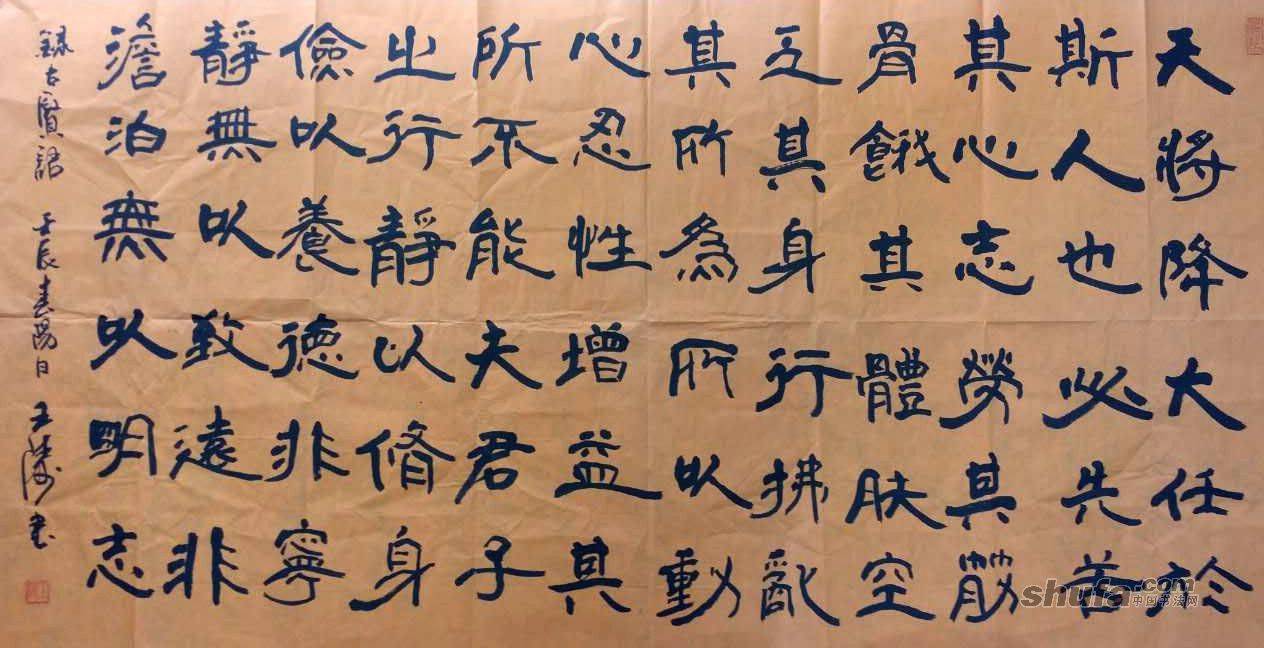 天將降大任於
斯人也必先苦
其心志勞其筋
骨餓其體肤空
乏其身行拂亂
其所為所以動
心忍性增益其
所不能夫君子
之行靜以脩身
儉以養德非寧
靜無以致遠非
澹泊無以明志
錄古賢語 壬辰春陽日 王 書
shufa.com
中国书法网